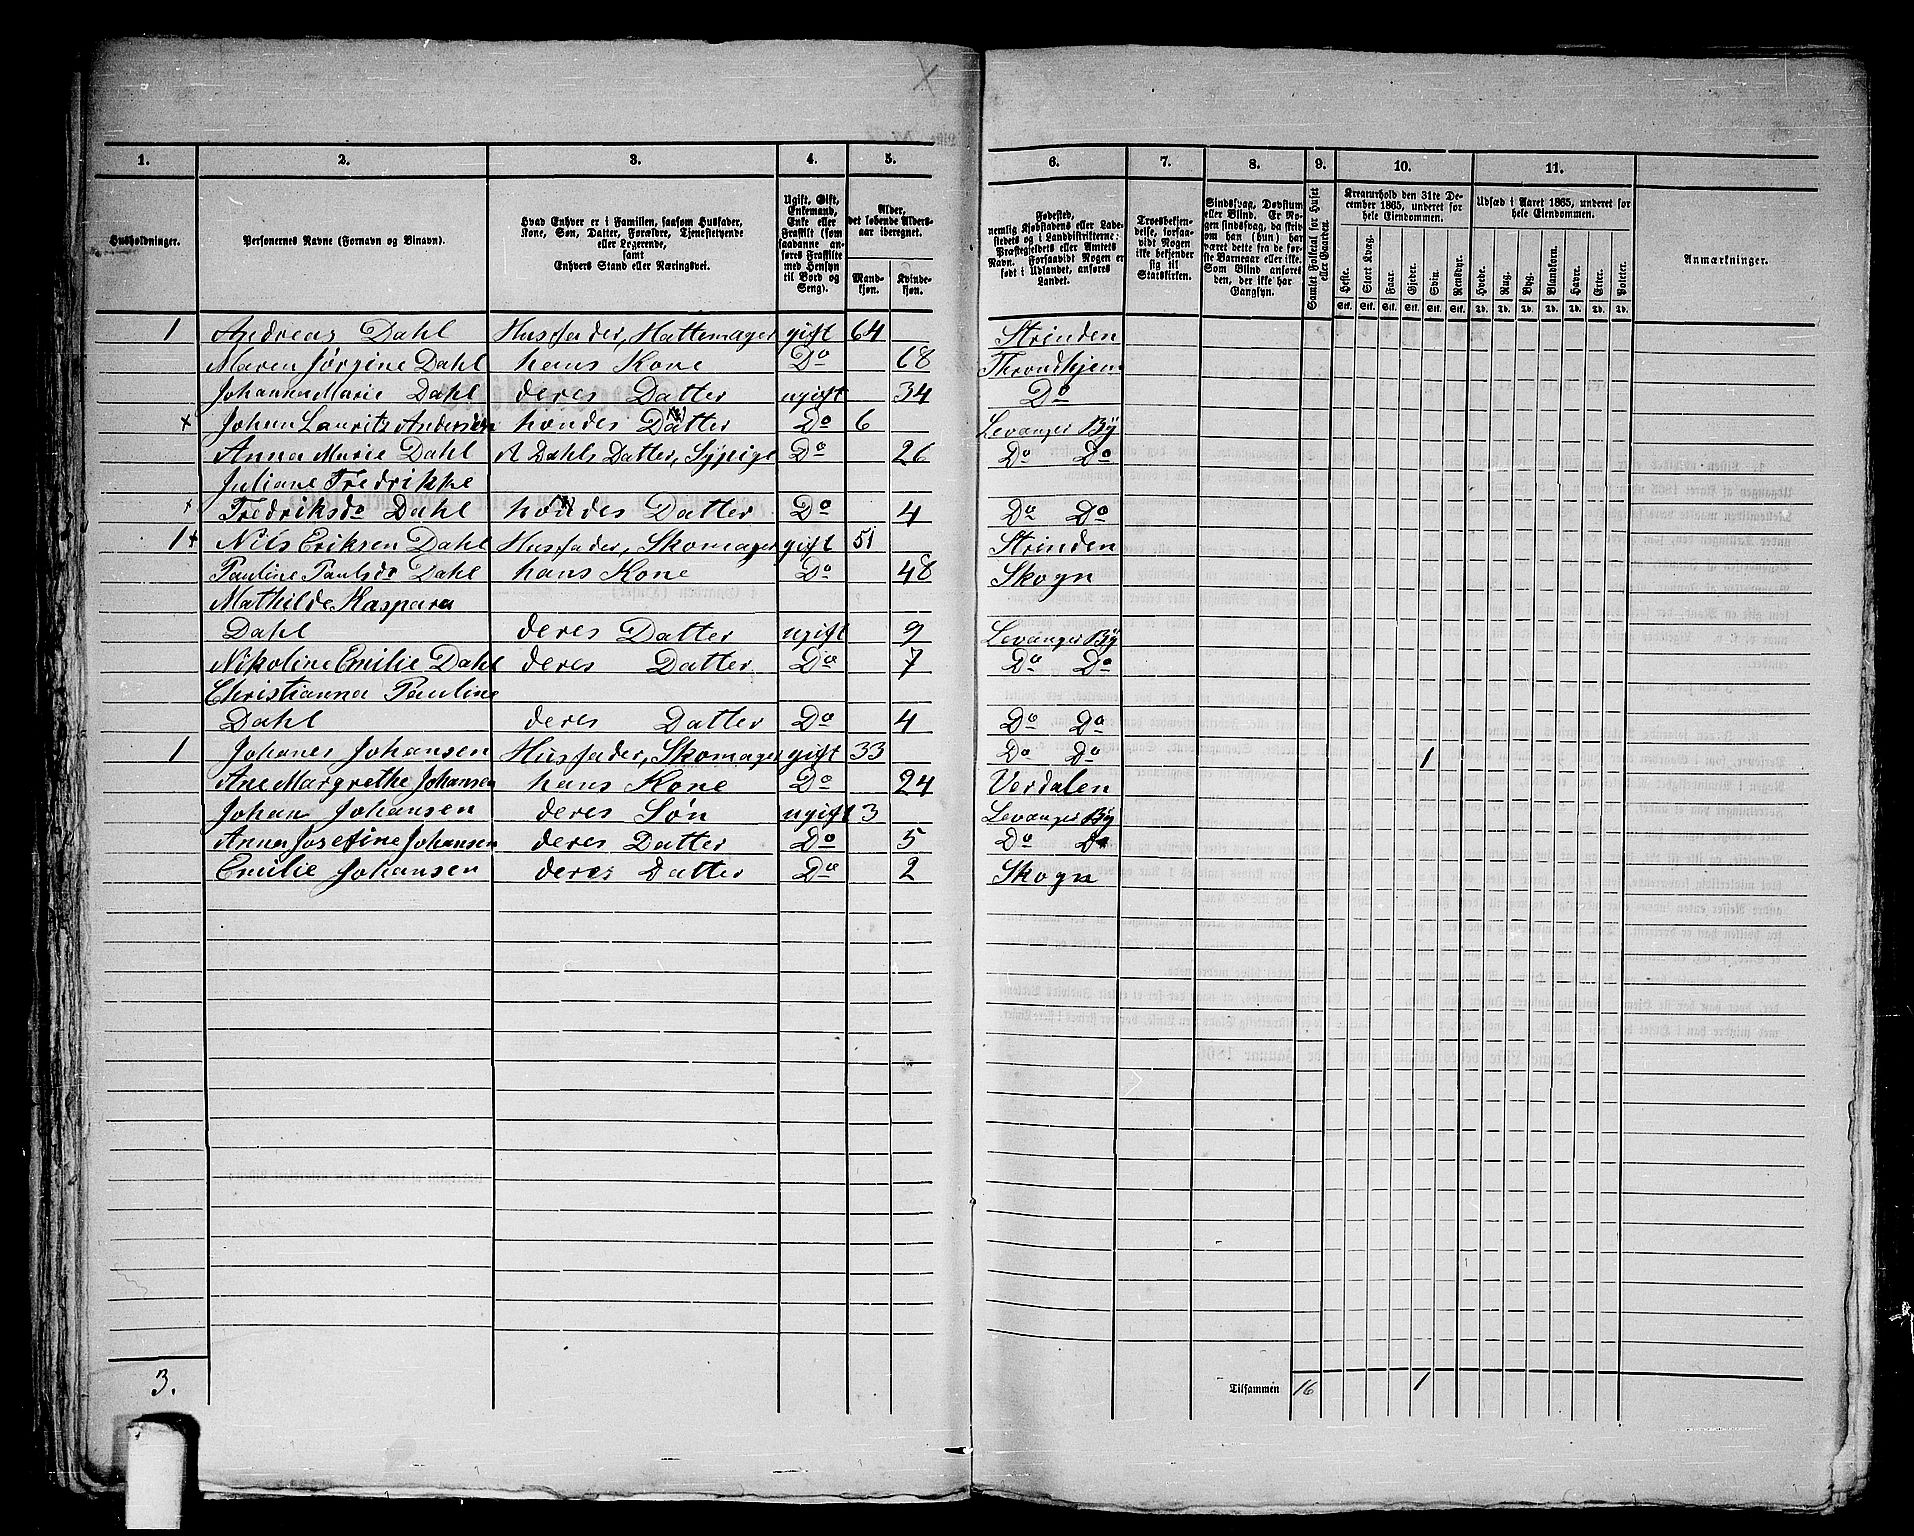 1. 2. 3. 4. 5. 6. 7. 8. 9. 10. 11.
Husholdninger.
Personernes Navne (Fornavn og Binavn).
Hvad Enhver er i Familien, saasom Husfader,
Kone, Søn, Datter, Forældre, Tjenestetyende
eller Logerende,
samt
Enhvers Stand eller Næringsvei.
Ugift, Gift,
Enkemand,
Enke eller
Fraskilt (som
saadanne an-
føres Fraskilte
med Hensyn
til Bord og
Seng).
Alder,
det løbende Alders-
aar iberegnet.
Mand-
kjøn.
Kvinde-
kjøn.
Fødested,
nemlig Kjøbstadens eller Lade-
stedets og i Landdistrikterne:
Præstegjeldets eller Amtets
Navn. Forsaavidt Nogen er
født i Udlandet, anføres
Landet.
Troesbekjen-
delse, forsaa-
vidt Nogen
ikke bekjender
sig til
Statskirken.
Sindssvag, Døvstum
eller Blind. Er No-
gen sindssvag, da skriv
om han (hun) har
været dette fra de før-
ste Barneaar eller ikke.
Som Blind anføres
den, der ikke har
Gangsyn.
Samlet Folketal for Huset
eller Gaarden.
Kreaturhold den 31te De-
cember 1865, underet for
hele Eiendommen.
Heste. Stort Kvæg. Faar. Gjeder. Svin. Rensdyr.
Stk. Stk. Stk. Stk. Stk. Stk.
Udsæd i Aaret 1865, underet for
hele Eiendommen.
Hvede. Rug. Byg. Blandkorn. Havre. Erter. Poteter.
Td. Td. Td. Td. Td. Td. Td.
Anmærkninger.
1 Andreas Dahl Husfader, Hattemager gift 64 Strinden
Maren Jørgine Dahl hans Kone Do 68 Throndhjem
Johanna Marie Dahl deres Datter ugift 34 Do
x Johan Lauritz Andersen hendes Datter Do 6 Levanger By
Anna Marie Dahl A Dahls Datter, Sypige Do 26 Do Do
Juliane Fredrikke
x Fredriksdr Dahl hendes Datter Do 4 Do Do
1 x Nils Eriksen Dahl Husfader, Skomager gift 51 Strinden
Pauline Paulsdr Dahl hans Kone Do 48 Skogn
Mathilde Kaspara
Dahl deres Datter ugift 9 Levanger By
Nikoline Emilie Dahl deres Datter Do 7 Do Do
Christianna Pauline
Dahl deres Datter Do 4 Do Do
1 Johanes Johansen Husfader, Skomager gift 33 Do Do 1
Ane Margrethe Johansen hans Kone Do 24 Verdalen
Johan Johansen deres Søn ugift 3 Levanger By
Anna Josefine Johansen deres Datter Do 5 Do Do
Emilie Johansen deres Datter Do 2 Skogn
3. Tilsammen 16 1